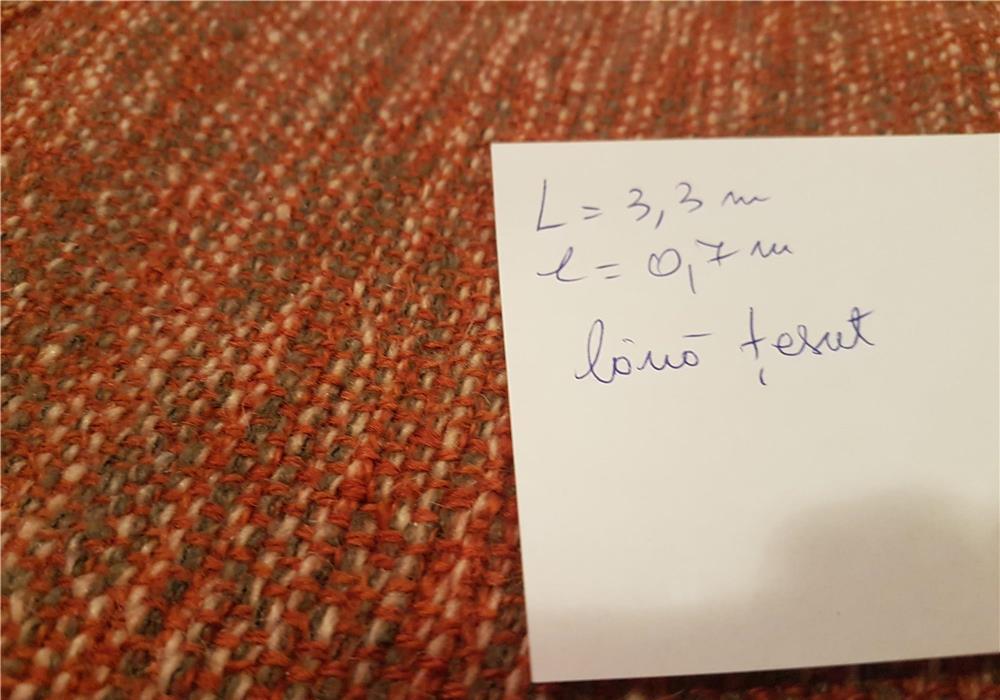 L = 3,3 m
l = 0,7 m
lână țesut